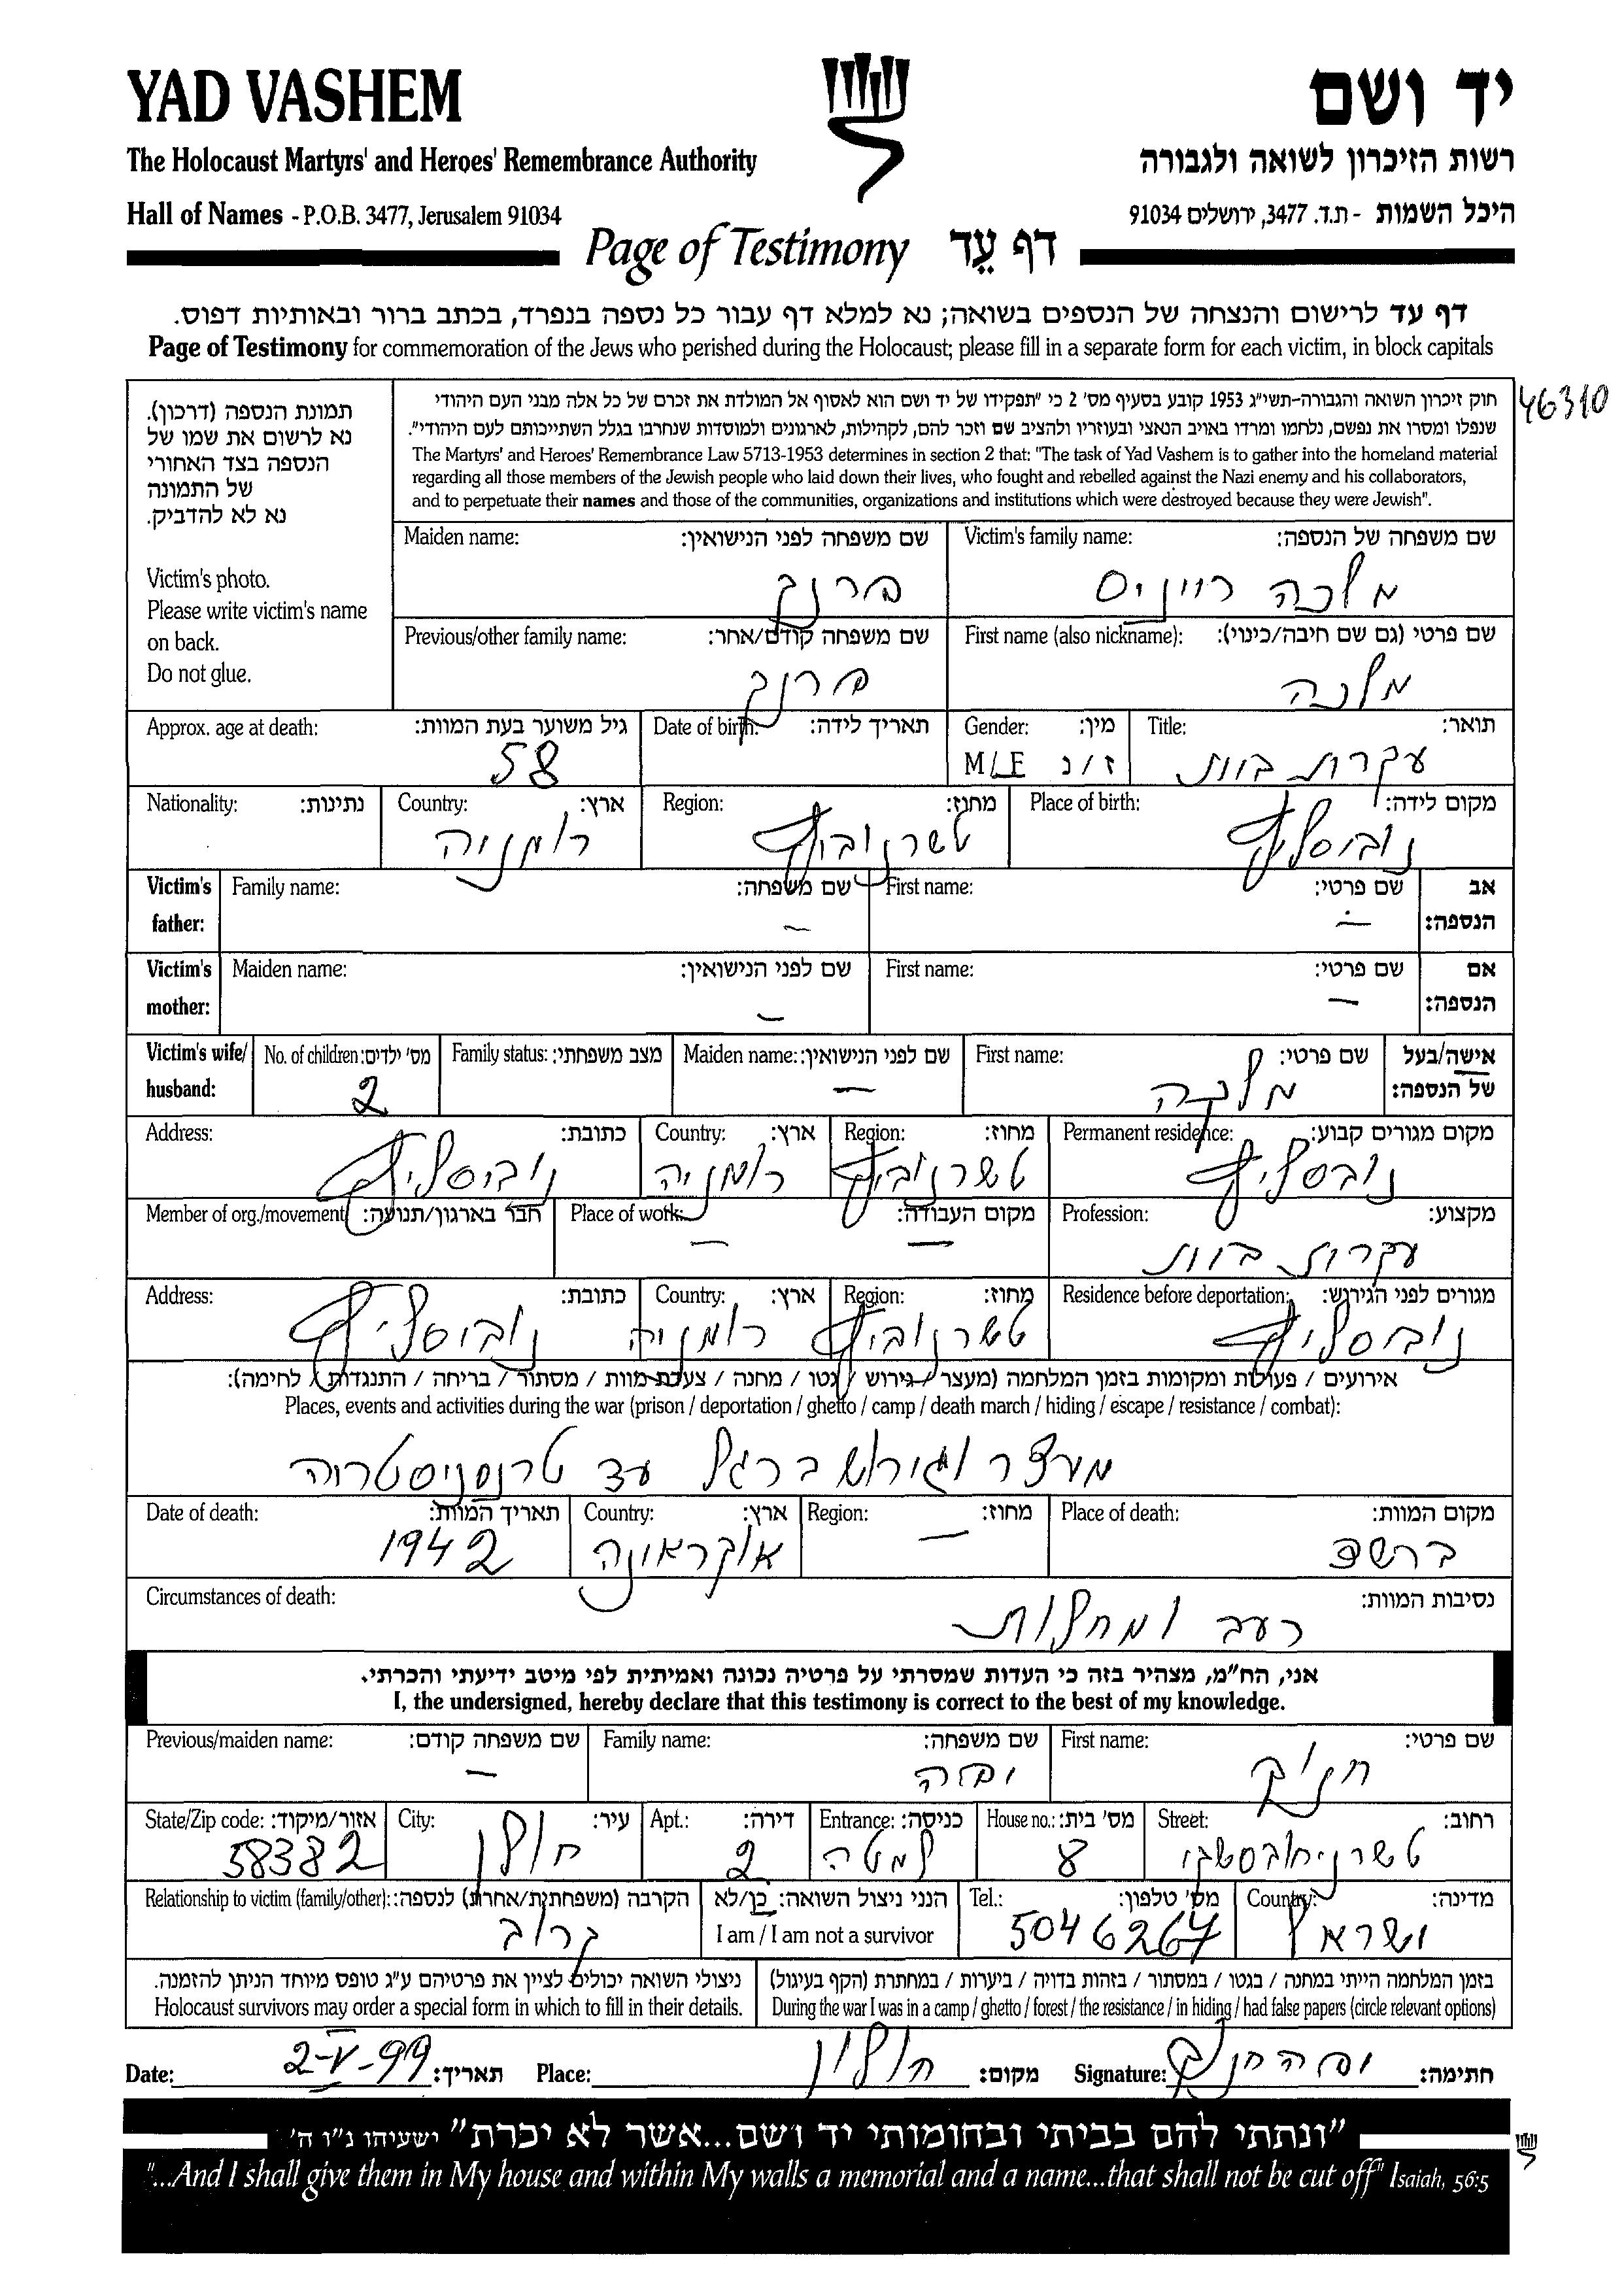 YAD VASHEM
יד ושם
The Holocaust Martyrs' and Heroes' Remembrance Authority
רשות הזיכרון לשואה ולגבורה
Hall of Names - P.O.B. 3477, Jerusalem 91034
היכל השמות - ת.ד. 3477, ירושלים 91034
Page of Testimony דף עֵד
דף עד לרישום והנצחה של הנספים בשואה; נא למלא דף עבור כל נספה בנפרד, בכתב ברור ובאותיות דפוס.
Page of Testimony for commemoration of the Jews who perished during the Holocaust; please fill in a separate form for each victim, in block capitals
46310
תמונת הנספה (דרכון).
נא לרשום את שמו של
הנספה בצד האחורי
של התמונה
נא לא להדביק.
Victim's photo.
Please write victim's name
on back.
Do not glue.
חוק זיכרון השואה והגבורה-תשי"ג 1953 קובע בסעיף מס' 2 כי "תפקידו של יד ושם הוא לאסוף אל המולדת את זכרם של כל אלה מבני העם היהודי
שנפלו ומסרו את נפשם, נלחמו ומרדו באויב הנאצי ובעוזריו ולהציב שם וזכר להם, לקהילות, לארגונים ולמוסדות שנחרבו בגלל השתייכותם לעם היהודי".
The Martyrs' and Heroes' Remembrance Law 5713-1953 determines in section 2 that: "The task of Yad Vashem is to gather into the homeland material
regarding all those members of the Jewish people who laid down their lives, who fought and rebelled against the Nazi enemy and his collaborators,
and to perpetuate their names and those of the communities, organizations and institutions which were destroyed because they were Jewish".
Victim's family name: שם משפחה של הנספה:
מלכה
Maiden name: שם משפחה לפני הנישואין:
First name (also nickname): שם פרטי (גם שם חיבה/כינוי):
מלכה
Previous/other family name: שם משפחה קודם/אחר:
Title: תואר:
עקרת בית
Gender: מין:
M/F ז/נ
Date of birth: תאריך לידה:
Approx. age at death: גיל משוער בעת המוות:
58
Place of birth: מקום לידה:
נוביסליץ
Region: מחוז:
טשרנוביץ
Country: ארץ:
רומניה
Nationality: נתינות:
Victim's father: אב הנספה:
First name: שם פרטי:
–
Family name: שם משפחה:
–
Victim's mother: אם הנספה:
First name: שם פרטי:
–
Maiden name: שם לפני הנישואין:
–
Victim's wife/ husband: אישה/בעל של הנספה:
First name: שם פרטי:
מלכה
Maiden name: שם לפני הנישואין:
–
Family status: מצב משפחתי:
No. of children: מס' ילדים:
2
Permanent residence: מקום מגורים קבוע:
נובסליץ
Region: מחוז:
טשרנוביץ
Country: ארץ:
רומניה
Address: כתובת:
נוביסליץ
Profession: מקצוע:
עקרת בית
Place of work: מקום העבודה:
– –
Member of org./movement: חבר בארגון/תנועה:
Residence before deportation: מגורים לפני הגירוש:
נוביסליץ
Region: מחוז:
טשרנוביץ
Country: ארץ:
רומניה
Address: כתובת:
נוביסליץ
אירועים / פעולות ומקומות בזמן המלחמה (מעצר / גירוש / גטו / מחנה / צעדת מוות / מסתור / בריחה / התנגדות / לחימה):
Places, events and activities during the war (prison / deportation / ghetto / camp / death march / hiding / escape / resistance / combat):
מעצר וגירוש ברגל עד טרנסניסטריה
Place of death: מקום המוות:
ברשד
Region: מחוז:
–
Country: ארץ:
אוקראינה
Date of death: תאריך המוות:
1942
Circumstances of death: נסיבות המוות:
רעב ומחלות
אני, הח"מ, מצהיר בזה כי העדות שמסרתי על פרטיה נכונה ואמיתית לפי מיטב ידיעתי והכרתי.
I, the undersigned, hereby declare that this testimony is correct to the best of my knowledge.
First name: שם פרטי:
חנוך
Family name: שם משפחה:
יפה
Previous/maiden name: שם משפחה קודם:
–
Street: רחוב:
טשרניחובסקי
House no.: מס' בית:
8
Entrance: כניסה:
למטה
Apt.: דירה:
2
City: עיר:
חולון
State/Zip code: אזור/מיקוד:
58382
Country: מדינה:
ישראל
Tel.: מס' טלפון:
5046267
הנני ניצול השואה: כן/לא
I am / I am not a survivor
Relationship to victim (family/other): הקרבה (משפחתית/אחרת) לנספה:
קרוב
בזמן המלחמה הייתי במחנה / בגטו / במסתור / בזהות בדויה / ביערות / במחתרת (הקף בעיגול)
During the war I was in a camp / ghetto / forest / the resistance / in hiding / had false papers (circle relevant options)
ניצולי השואה יכולים לציין את פרטיהם ע"ג טופס מיוחד הניתן להזמנה.
Holocaust survivors may order a special form in which to fill in their details.
Date: 2-V-99 תאריך: Place: חולון מקום: Signature: יפה חנוך חתימה:
"ונתתי להם בביתי ובחומותי יד ושם...אשר לא יכרת" ישעיהו נ"ו ה'
"...And I shall give them in My house and within My walls a memorial and a name...that shall not be cut off" Isaiah, 56:5